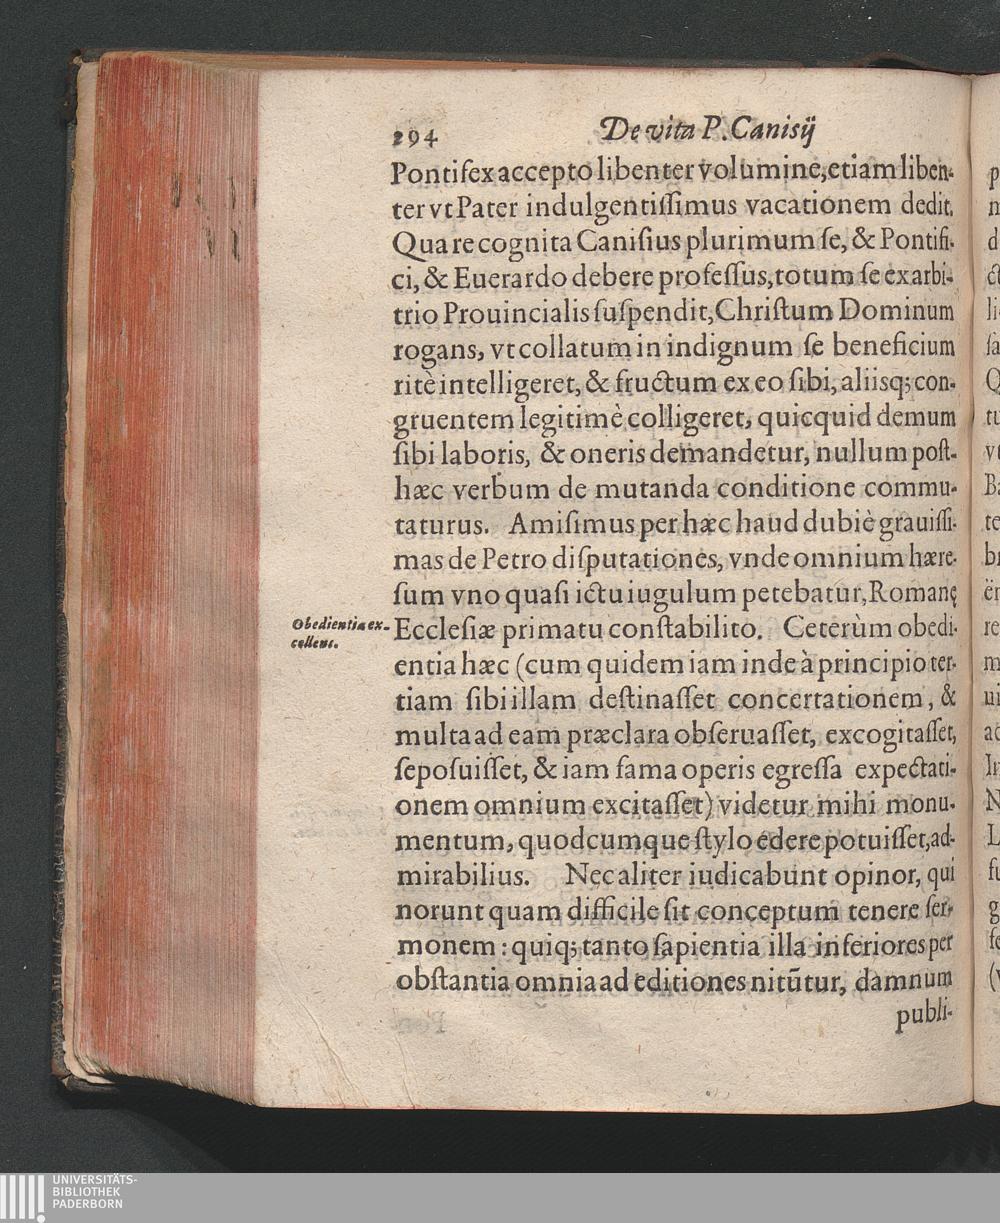 294 De vita P. Canisij
Pontifex accepto libenter volumine, etiam liben-
ter vt Pater indulgentiſſimus vacationem dedit.
Qua re cognita Caniſius plurimum ſe, & Pontifi-
ci, & Euerardo debere profeſſus, totum ſe ex arbi-
trio Prouincialis ſuſpendit, Chriſtum Dominum
rogans, vt collatum in indignum ſe beneficium
ritè intelligeret, & fructum ex eo ſibi, aliisq; con-
gruentem legitimè colligeret, quicquid demum
ſibi laboris, & oneris demandetur, nullum poſt-
hæc verbum de mutanda conditione commu-
taturus. Amiſimus per hæc haud dubiè grauiſſi-
mas de Petro diſputationes, vnde omnium hære-
ſum vno quaſi ictu iugulum petebatur, Romanę
Obedientia ex-
cellens.
Eccleſiæ primatu conſtabilito. Ceterùm obedi-
entia hæc (cum quidem iam inde à principio ter-
tiam ſibi illam deſtinaſſet concertationem, &
multa ad eam præclara obſeruaſſet, excogitaſſet,
ſepoſuiſſet, & iam fama operis egreſſa expectati-
onem omnium excitaſſet) videtur mihi monu-
mentum, quodcumque ſtylo edere potuiſſet, ad-
mirabilius. Nec aliter iudicabunt opinor, qui
norunt quam difficile ſit conceptum tenere ſer-
monem: quiq; tanto ſapientia illa inferiores per
obſtantia omnia ad editiones nitūtur, damnum
publi-
UNIVERSITÄTS-
BIBLIOTHEK
PADERBORN